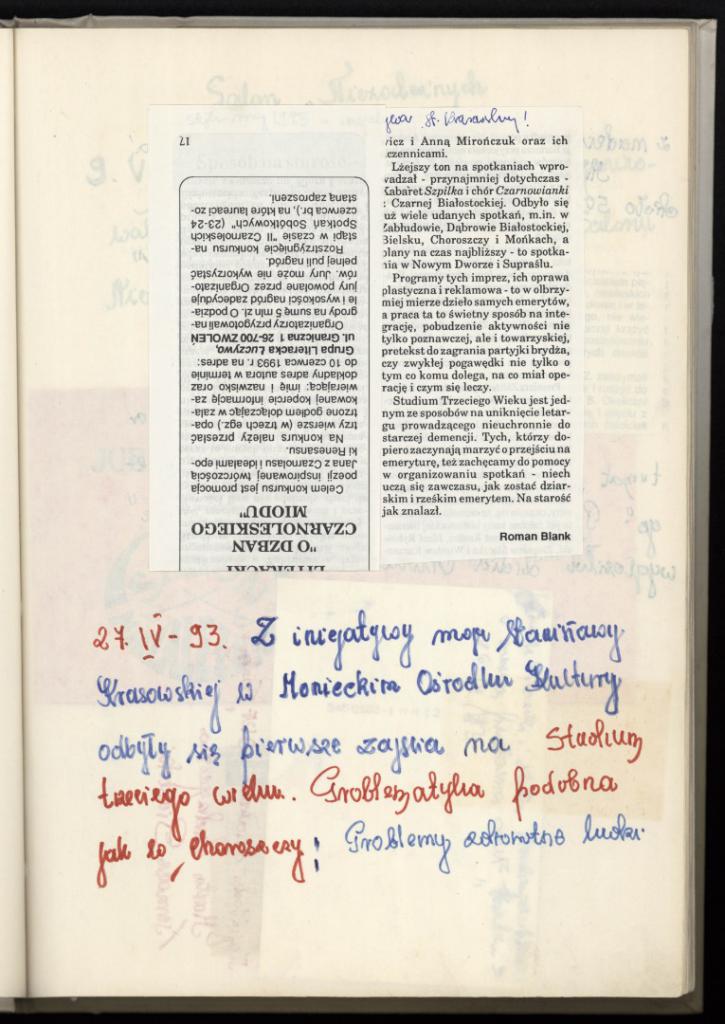 St. Krasowskiej!
icz i Anną Mirończuk oraz ich
czennicami.
Lżejszy ton na spotkaniach wpro-
vadzał - przynajmniej dotychczas -
Kabaret Szpilka i chór Czarnowianki
Czarnej Białostockiej. Odbyło się
uż wiele udanych spotkań, m.in. w
Zabłudowie, Dąbrowie Białostockiej,
Bielsku, Choroszczy i Mońkach, a
plany na czas najbliższy - to spotka-
nia w Nowym Dworze i Supraślu.
Programy tych imprez, ich oprawa
plastyczna i reklamowa - to w olbrzy-
miej mierze dzieło samych emerytów,
a praca ta to świetny sposób na inte-
grację, pobudzenie aktywności nie
tylko poznawczej, ale i towarzyskiej,
pretekst do zagrania partyjki brydża,
czy zwykłej pogawędki nie tylko o
tym co komu dolega, na co miał ope-
rację i czym się leczy.
Studium Trzeciego Wieku jest jed-
nym ze sposobów na uniknięcie letar-
gu prowadzącego nieuchronnie do
starczej demencji. Tych, którzy do-
piero zaczynają marzyć o przejściu na
emeryturę, też zachęcamy do pomocy
w organizowaniu spotkań - niech
uczą się zawczasu, jak zostać dziar-
skim i rześkim emerytem. Na starość
jak znalazł.
Roman Blank
LITERACKI
"O DZBAN
CZARNOLESKIEGO
MIODU"
Celem konkursu jest promocja
poezji inspirowanej twórczością
Jana z Czarnolasu i ideałami epo-
ki Renesansu.
Na konkurs należy przesłać
trzy wiersze (w trzech egz.) opa-
trzone godłem dołączając w zala-
kowanej kopercie informację za-
wierającą: imię i nazwisko oraz
dokładny adres autora w terminie
do 10 czerwca 1993 r. na adres:
Grupa Literacka Łuczywo,
ul. Graniczna 1 26-700 ZWOLEŃ
Organizatorzy przygotowali na-
grody na sumę 5 mln zł. O podzia-
le i wysokości nagród zadecyduje
jury powołane przez Organizato-
rów. Jury może nie wykorzystać
pełnej puli nagród.
Rozstrzygnięcie konkursu na-
stąpi w czasie "II Czarnoleskich
Spotkań Sobótkowych" (23-24
czerwca br.), na które laureaci zo-
staną zaproszeni.
17
27. IV - 93. Z inicjatywy mojej Stanisławy
Krasowskiej w Monieckim Ośrodku Kultury
odbyły się pierwsze zajęcia na Studium
trzeciego wieku. Problematyka podobna
jak w Choroszczy; Problemy zdrowotne ludzi